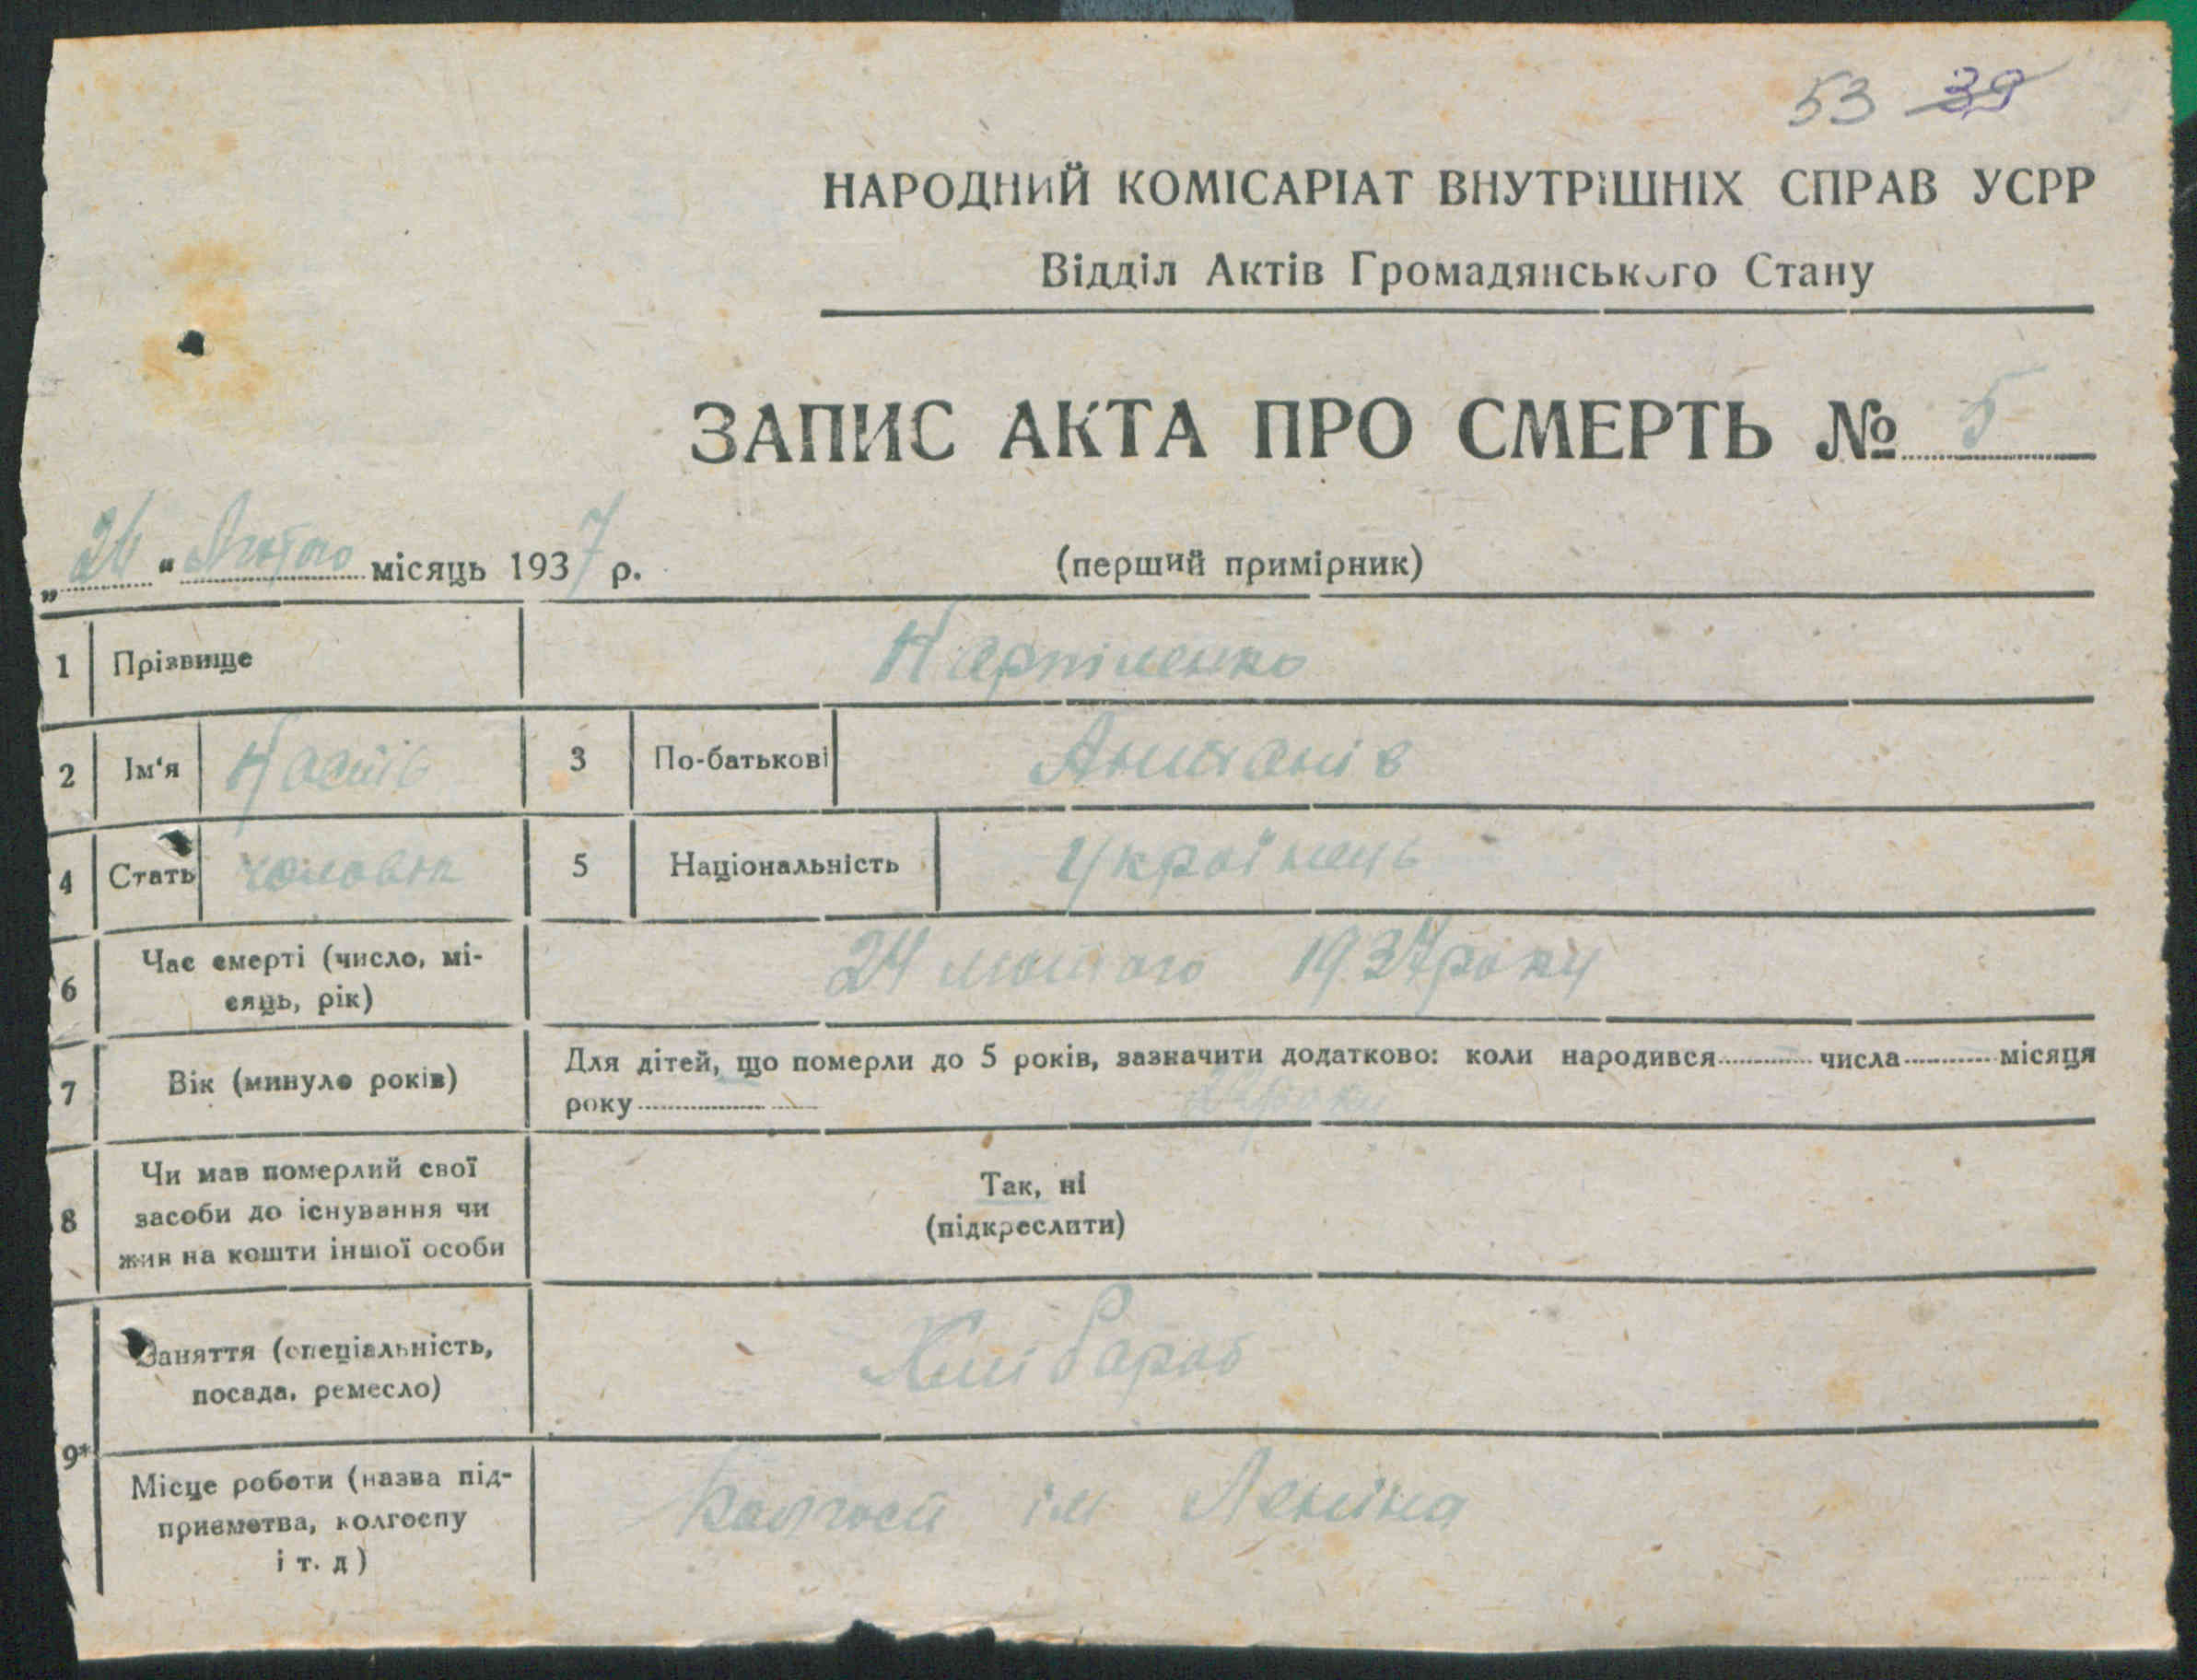 53 39
НАРОДНИЙ КОМІСАРІАТ ВНУТРІШНІХ СПРАВ УСРР
Відділ Актів Громадянського Стану
ЗАПИС АКТА ПРО СМЕРТЬ № 5
„ " Лютого місяць 1937 р.
(перший примірник)
1 Прізвище
2 Ім'я 3 По-батькові
4 Стать чоловік 5 Національність Українець
6 Час смерті (число, мі-
сяць, рік)
24 лютого 1937 року
7 Вік (минуло років)
Для дітей, що померли до 5 років, зазначити додатково: коли народився числа місяця
року
8 Чи мав померлий свої
засоби до існування чи
жив на кошти іншої особи
Так, ні
(підкреслити)
9* Заняття (спеціальність,
посада, ремесло)
Хлібароб
Місце роботи (назва під-
приємства, колгоспу
і т. д)
Колгосп ім Леніна